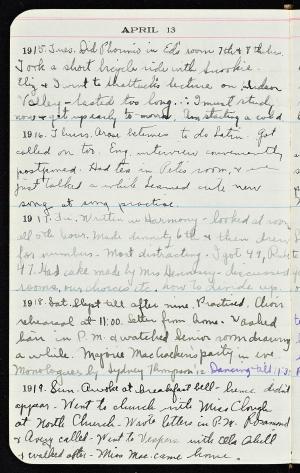 APRIL 13
1915. Tues. Did Phormio in Ed's room 7th & 8th hrs.
Took a short bicycle ride with
Eliz & I went to Shattuck's lecture on Hudson
Valley - lasted too long. ∴ I must study
now & get up early to morrow. Am starting a cold
1916. Thurs. Arose betimes to do Latin. Got
called on too. Eng. interview conveniently
postponed. Had tea in Pete's room, & we
just talked a while. Learned cute new
song at song practice.
1917. Fri. Written in Harmony - looked at room
all 5th hour. Made dinnity 6th & then drew
for numbers. Most distracting. I got 47,
47. Had cake made by Mrs - discussed
rooms, our choices etc. how to divide up.
1918. Sat. Slept till after nine. Practised. Choir
rehearsal at 11:00. Letter from home. Washed
hair in P.M. & watched Senior room drawing
a while. Marjorie MacCracken's party in eve.
Monologues by Sydney Thompson. Dancing till
1919. Sun. Awoke at breakfast bell - hence didn't
appear - Went to church with Miss Clough
at North Church - Wrote letters in P.M. Rosamond
& Avery called - Went to Vespers with
& walked after - Miss Mac. came home.